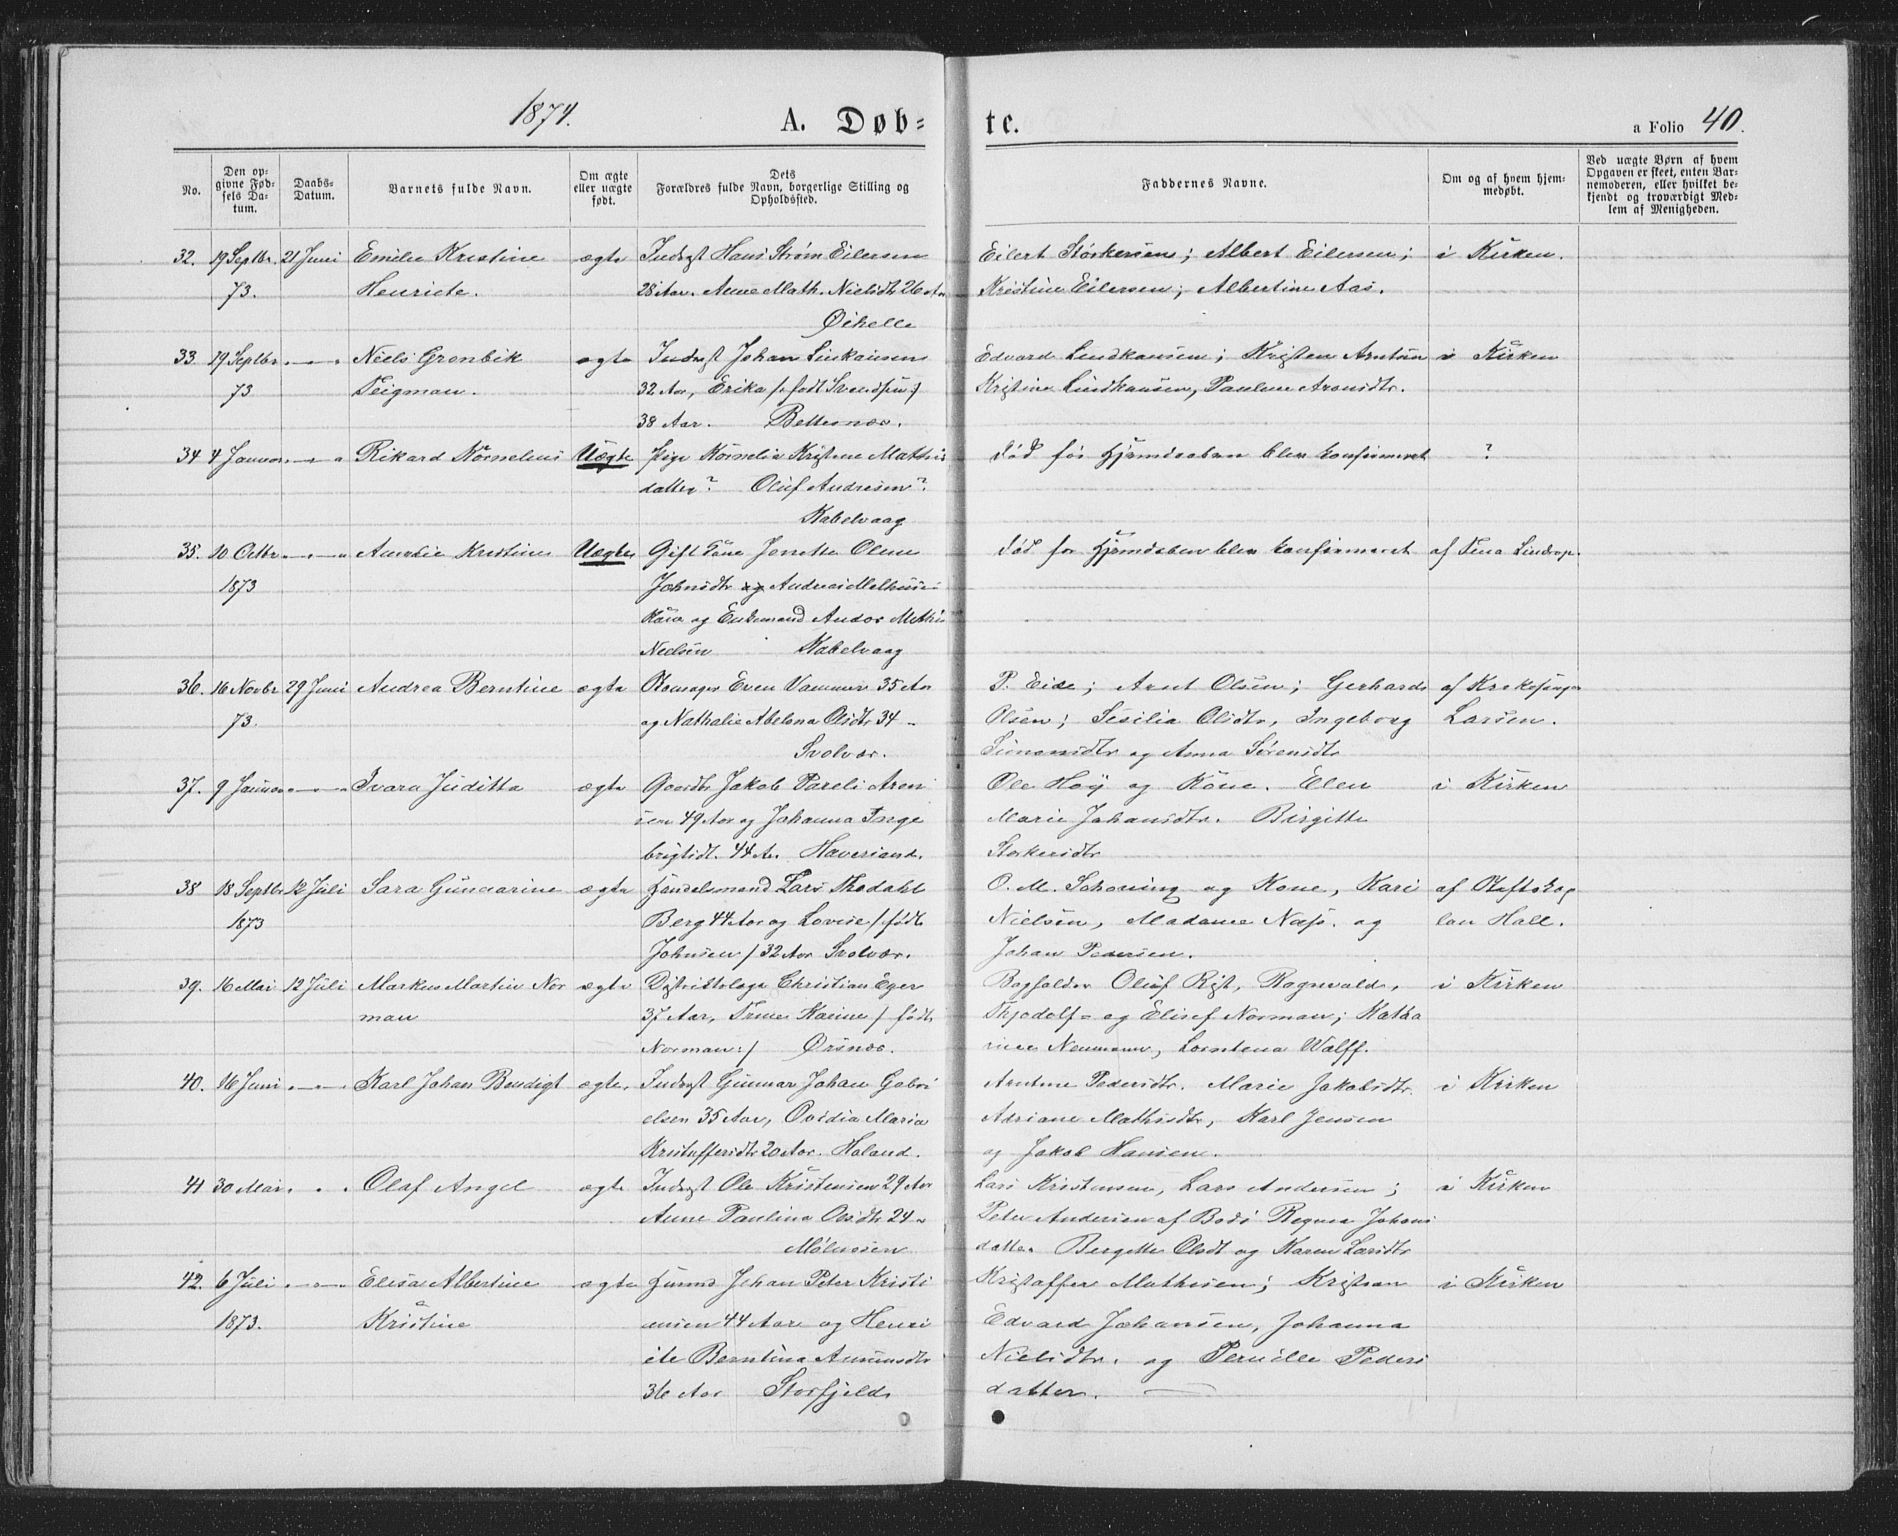 1874.
A. Døb=
te.
a Folio 40.
No.
Den opgivne Fødsels Datum.
Daabs-Datum.
Barnets fulde Navn.
Om ægte eller uægte født.
Dets Forældres fulde Navn, borgerlige Stilling og Opholdssted.
Faddernes Navne.
Om og af hvem hjemmedøbt.
Ved uægte Børn af hvem Opgaven er skeet, enten Barnemoderen, eller hvilket bekjendt og troværdigt Medlem af Menigheden.
32. 19 Septbr. 21 Juni Emilie Kristine ægte Inderst Hans Strøm Eilersen Eilert Storkersens; Albert Eilersen; i Kirken.
73. Henriete. 28 Aar. Anne Math. Nielsdtr 26 Aar Kristine Eilersen; Albertine Aas.
Ørhelle
33. 19 Septbr Niels Grønbek ægte Inderst Johan Lindkausen Edvard Lindkausen; Kristen Arntsen i Kirken
73 Teigman. 32 Aar, Erika /: født Svendsen :/ Kristine Lindkausen, Pauline Aronsdtr.
38 Aar.
34 4 Januar Rikard Kornelius Uægte Pige Kornelia Kristine Mathis død før Hjemdaaben blev konfirmeret ?
datter? Oluf Andresen?
Kabelvaag
35. 10 Octbr Amalie Kristine Uægte Gift Kone Jonette Oline død før Hjemdaaben blev konfirmeret af Tina Lindrop.
1873 Johnsdtr og Andreas Melhuses
Kone og Enkemand Andor Mathis
Nielsen Kabelvaag
36. 16 Novbr 29 Juni Andrea Berntine ægte Even Vammer 35 Aar P. Eide; Arnt Olsen; Gerhard af Kirkesanger
73. og Nathalie Abelona Olsdtr 34 „ Olsen; Sesilia Olsdtr, Ingeborg Larsen.
Svolvær. Simonsdtr og Anna Sørensdtr
37. 9 Januar Ivara Juditta ægte Gaardbr Jakob Pareli Aron Ole Høy og Kone. Elen i Kirken
sen 49 Aar og Johanna Inge Marie Johansdtr. Birgitte
brigtsdt. 44 Aar Haversand. Storkersdtr
38 18 Septbr 12 Juli Sara Gunnarine ægte Handelsmand Lars Thodahl O. M. Schøning og Kone, Kari af Stiftskap
1873 Berg 44 Aar og Lovise /: født Nielsen, Madame Næss. og lan Hall.
Johnsen / 32 Aar Svolvær. Johan Pedersen.
39. 16 Mai 12 Juli Markus Martin Nor ægte Distriktslæge Christian Eger Bogholder Oluf Rist, Ragnvald, i Kirken
man 37 Aar, Trine Karine / født Thjodolf og Elisef Norman; Katha
Norman :/ Ørsnes. rine Neumann, Lorntena Wolff.
40. 16 Juni Karl Johan Bendigt ægte. Inderst Gunnar Johan Gabri Arntine Pedersdtr. Marie Jakobsdtr. i Kirken
elsen 35 Aar, Ovidia Maria Adriane Mathisdtr, Karl Jensen
Kristoffersdtr 20 Aar. Holand. og Jakob Hansen.
41 30 Mai Olaf Angel ægte Inderst Ole Kristensen 29 Aar Lars Kristensen, Lars Andersen; i Kirken
Anne Paulina Olsdtr 24 „ Peter Andersen af Bodø Regna Johans
Mølnosen datter Bergitte Olsdt og Karen Larsdtr
42. 6 Juli Elisa Albertine ægte Huusmd Johan Peter Kristi Kristoffer Mathisen; Kristian i Kirken
1873. Kristine ansen 44 Aar og Henri Edvard Johansen, Johanna
ete Berntina Amundsdtr Nielsdtr. og Pernille Peders
36 Aar Storfjeld. datter.